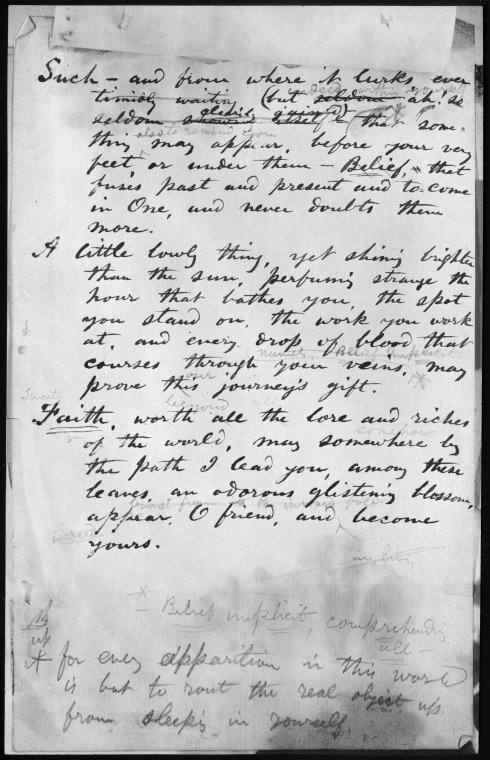 Such – and from where it lurks, ever
indeed within yourself
timidly waiting, (but seldom ah, so
seldom shows clearly itself) – that some-
also to remind you
thing may appear, before your very
feet, or under them – Belief, that
fuses past and present and to-come
in One, and never doubts them
more.
A little lowly thing, yet shining brighter
than the sun, perfuming strange the
hour that bathes you, the spot
you stand on, the work you work
at, and every drop of blood that
courses through your veins, may
prove this journey's gift.
Sweet
Faith, worth all the lore and riches
of the world, may somewhere by
the path I lead you, among these
leaves, an odorous glistening blossom,
appear, O friend, and become
yours.
* – Belief implicit, comprehending
all –
for every apparition in this world
is but to rout the real object up
from sleeping in yourself.